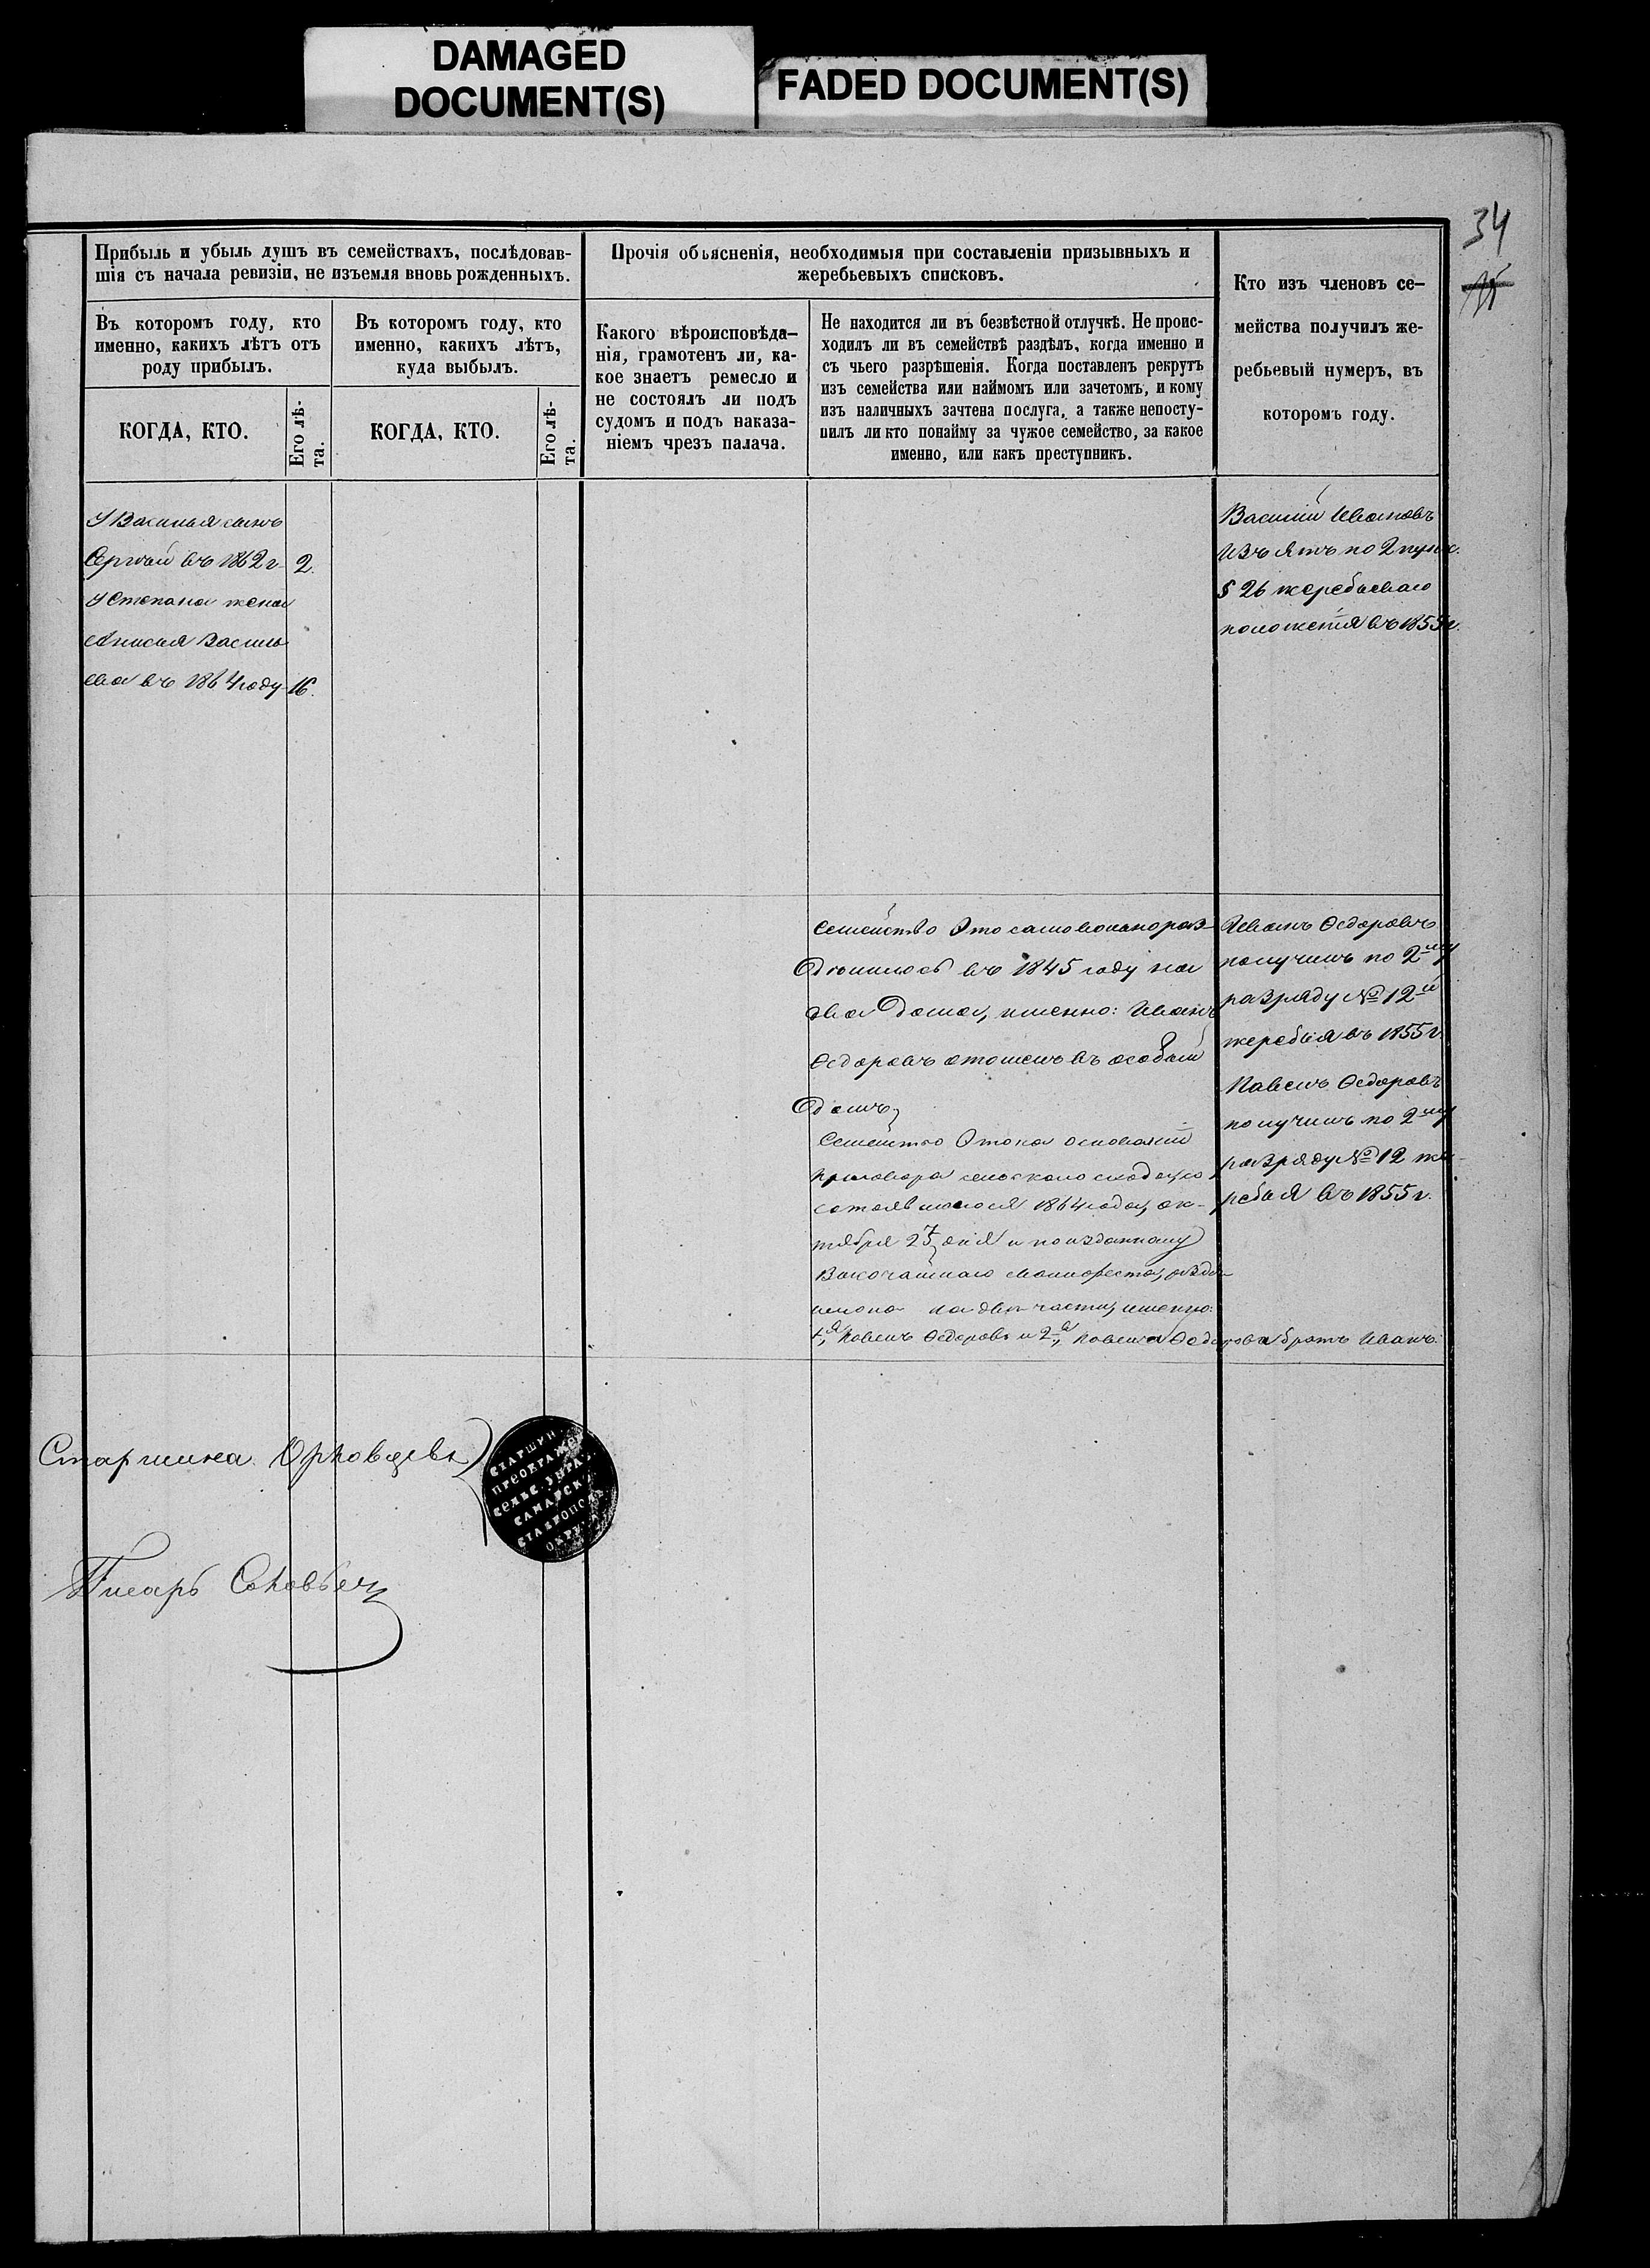 DAMAGED
DOCUMENT(S)
FADED DOCUMENT(S)
34
Прибыль и убыль душъ въ семействахъ, послѣдовав-
шія съ начала ревизіи, не изъемля вновь рожденныхъ.
Въ которомъ году, кто
именно, какихъ лѣтъ отъ
роду прибылъ.
КОГДА, КТО.
Его лѣ-
та.
Въ которомъ году, кто
именно, какихъ лѣтъ,
куда выбылъ.
КОГДА, КТО.
Его лѣ-
та.
Прочія объясненія, необходимыя при составленіи призывныхъ и
жеребьевыхъ списковъ.
Какого вѣроисповѣда-
нія, грамотенъ ли, ка-
кое знаетъ ремесло и
не состоялъ ли подъ
судомъ и подъ наказа-
ніемъ чрезъ палача.
Не находится ли въ безвѣстной отлучкѣ. Не проис-
ходилъ ли въ семействѣ раздѣлъ, когда именно и
съ чьего разрѣшенія. Когда поставленъ рекрутъ
изъ семейства или наймомъ или зачетомъ, и кому
изъ наличныхъ зачтена послуга, а также непосту-
пилъ ли кто понайму за чужое семейство, за какое
именно, или какъ преступникъ.
Кто изъ членовъ се-
мейства получилъ же-
ребьевый нумеръ, въ
которомъ году.
У Василья сынъ
Сергѣй въ 1862 г. 2.
У Степана жена
Анисья Василь
ева въ 1864 году 16.
Василій Ивановъ
Изъятъ по 2 пунк.
§ 26 жеребьеваго
положенія въ 1855 г.
Семейство Это самовольно раз-
дѣлилось въ 1845 году на
два дома, именно: Иванъ
Ѳедоровъ отошелъ въ особый
домъ,
Семейство Это на основаніи
приговора сельскаго схода,
состоявшагося 1864 года, ок-
тября 25 дня и по изданному
Высочайшаго Манифеста, раздѣ-
лено на двѣ части, именно:
1я, Павелъ Ѳедоровъ и 2я, Павела Ѳедорова братъ Иванъ.
Иванъ Ѳедоровъ
получилъ по 2му
разряду № 12й
жеребья въ 1855 г.
Павелъ Ѳедоровъ
получилъ по 2му
разряду № 12 же-
ребья въ 1855 г.
Старшина
СТАРШИН
ПРЕОБРАЖЕН
СЕЛЬС. УПРА.
САМАРСК.
СТАВРОПОЛЬ
ОКРУ.
Писарь